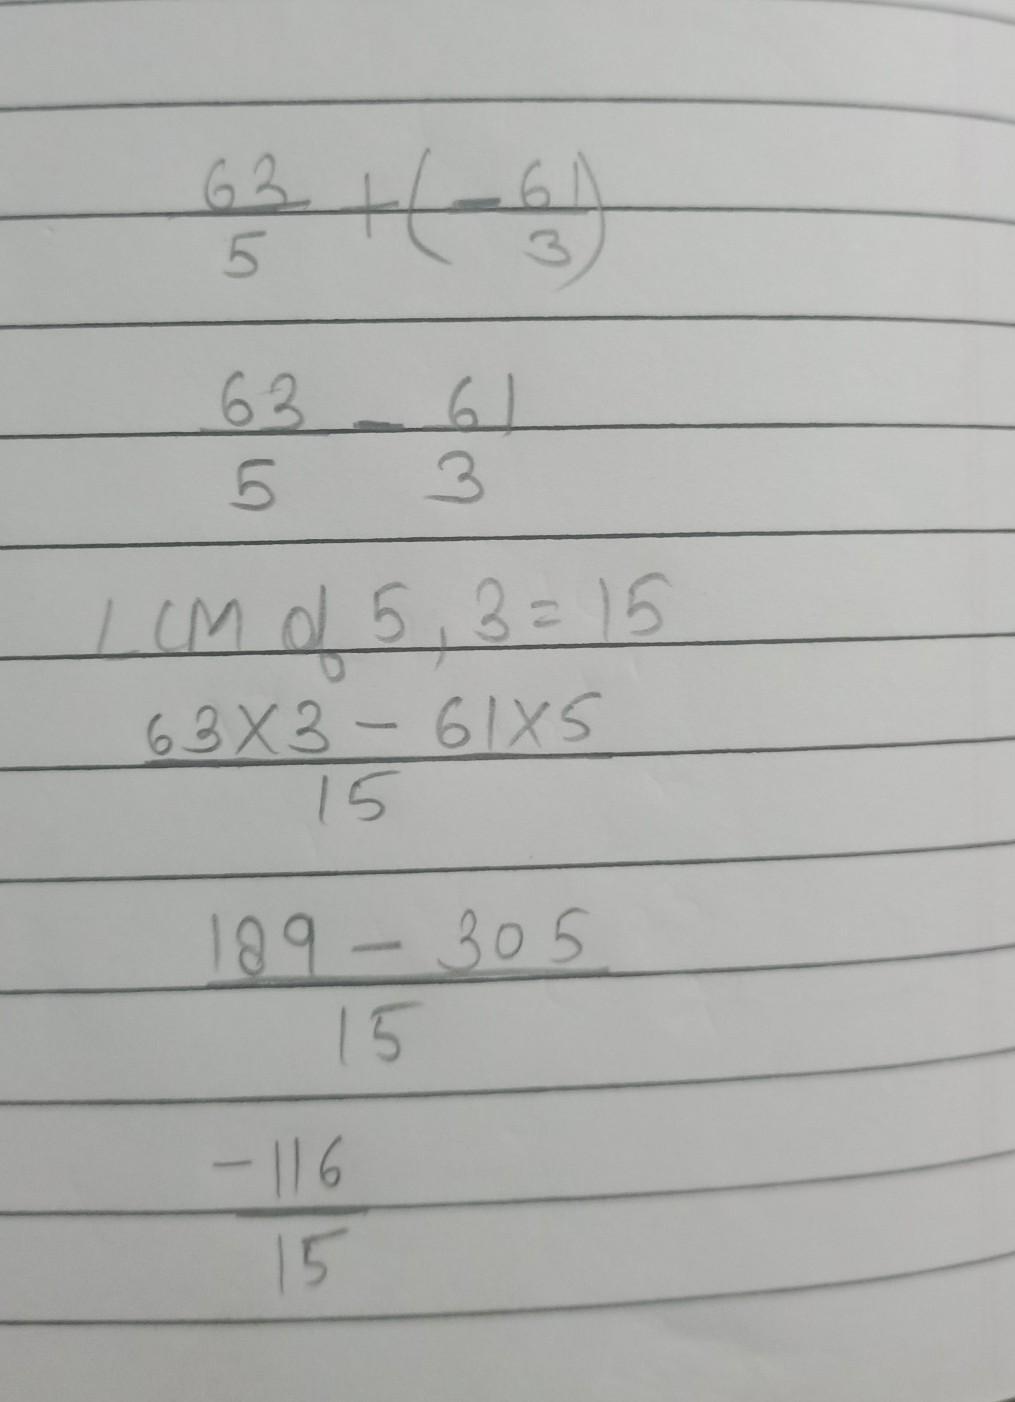 63/5 + (-61/3)
63/5 - 61/3
LCM of 5, 3 = 15
63×3 - 61×5/15
189 - 305/15
-116/15